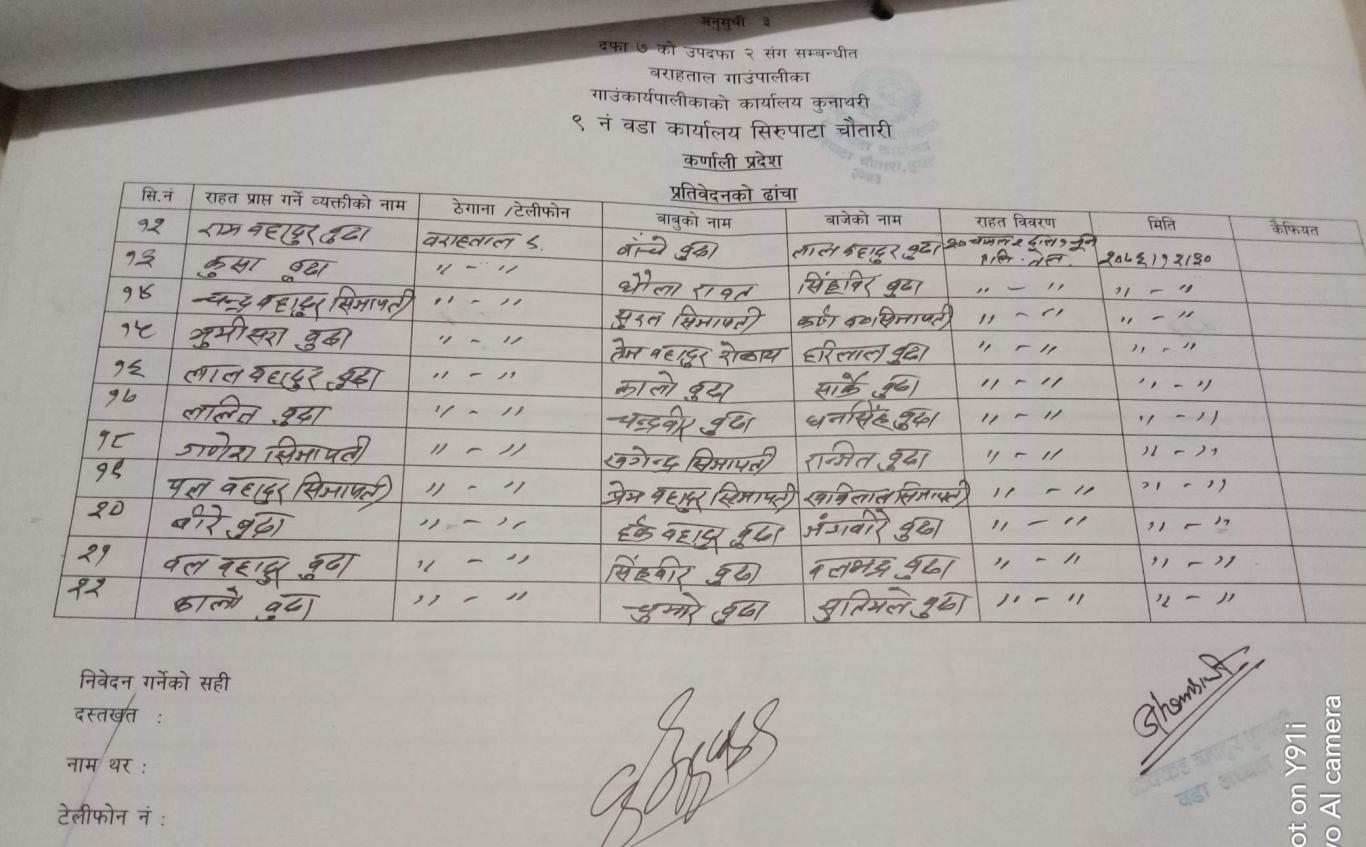 अनुसुची ३
दफा ७ को उपदफा २ संग सम्बन्धीत
बराहताल गाउंपालीका
गाउंकार्यपालीकाको कार्यालय कुनाथरी
९ नं वडा कार्यालय सिरुपाटा चौतारी
कर्णाली प्रदेश
प्रतिवेदनको ढांचा
सि.नं राहत प्राप्त गर्ने व्यक्तीको नाम ठेगाना /टेलीफोन बाबुको नाम बाजेको नाम राहत विवरण मिति कैफियत
१२ राम बहादुर बुढा वराहताल ९. बुढा लाल बहादुर बुढा
१३ कुसा बुढा " - " रावत सिंहविर बुढा " - " " - "
१४ चन्द्र बहादुर सिजापती " - " सुरत सिजापती " - " " - "
१५ जुमीसरा बुढा " - " तेज बहादुर रोकाय हरिलाल बुढा " - " " - "
१६ लाल बहादुर बुढा " - " कालो बुढा सार्के बुढा " - " " - "
१७ ललित बुढा " - " चन्द्रवीर बुढा धनसिंह बुढा " - " " - "
१८ गणेश सिजापती " - " खगेन्द्र सिजापती रन्जित बुढा " - " " - "
१९ बहादुर सिजापती " - " प्रेम बहादुर सिजापती " - " " - "
२० बीरे बुढा " - " बहादुर बुढा जंगवीरे बुढा " - " " - "
२१ वल बहादुर बुढा " - " सिंहवीर बुढा वलभद्र बुढा " - " " - "
२२ कालो बुढा " - " बुढा बुढा " - " " - "
निवेदन गर्नेको सही
दस्तखत :
नाम थर :
टेलीफोन नं :
ot on Y91i
vo AI camera